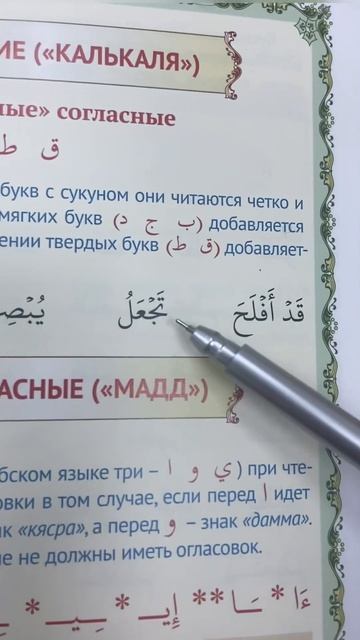 ИЕ («КАЛЬКАЛЯ»)
ные» согласные
ق ط
букв с сукуном они читаются четко и
мягких букв (ب ج د) добавляется
ении твердых букв (ق ط) добавляет-
قَدْ أَفْلَحَ تَجْعَلُ
АСНЫЕ («МАДД»)
бском языке три – ي و ا) при чте-
овки в том случае, если перед ا идет
к «кясра», а перед و – знак «дамма».
е не должны иметь огласовок.